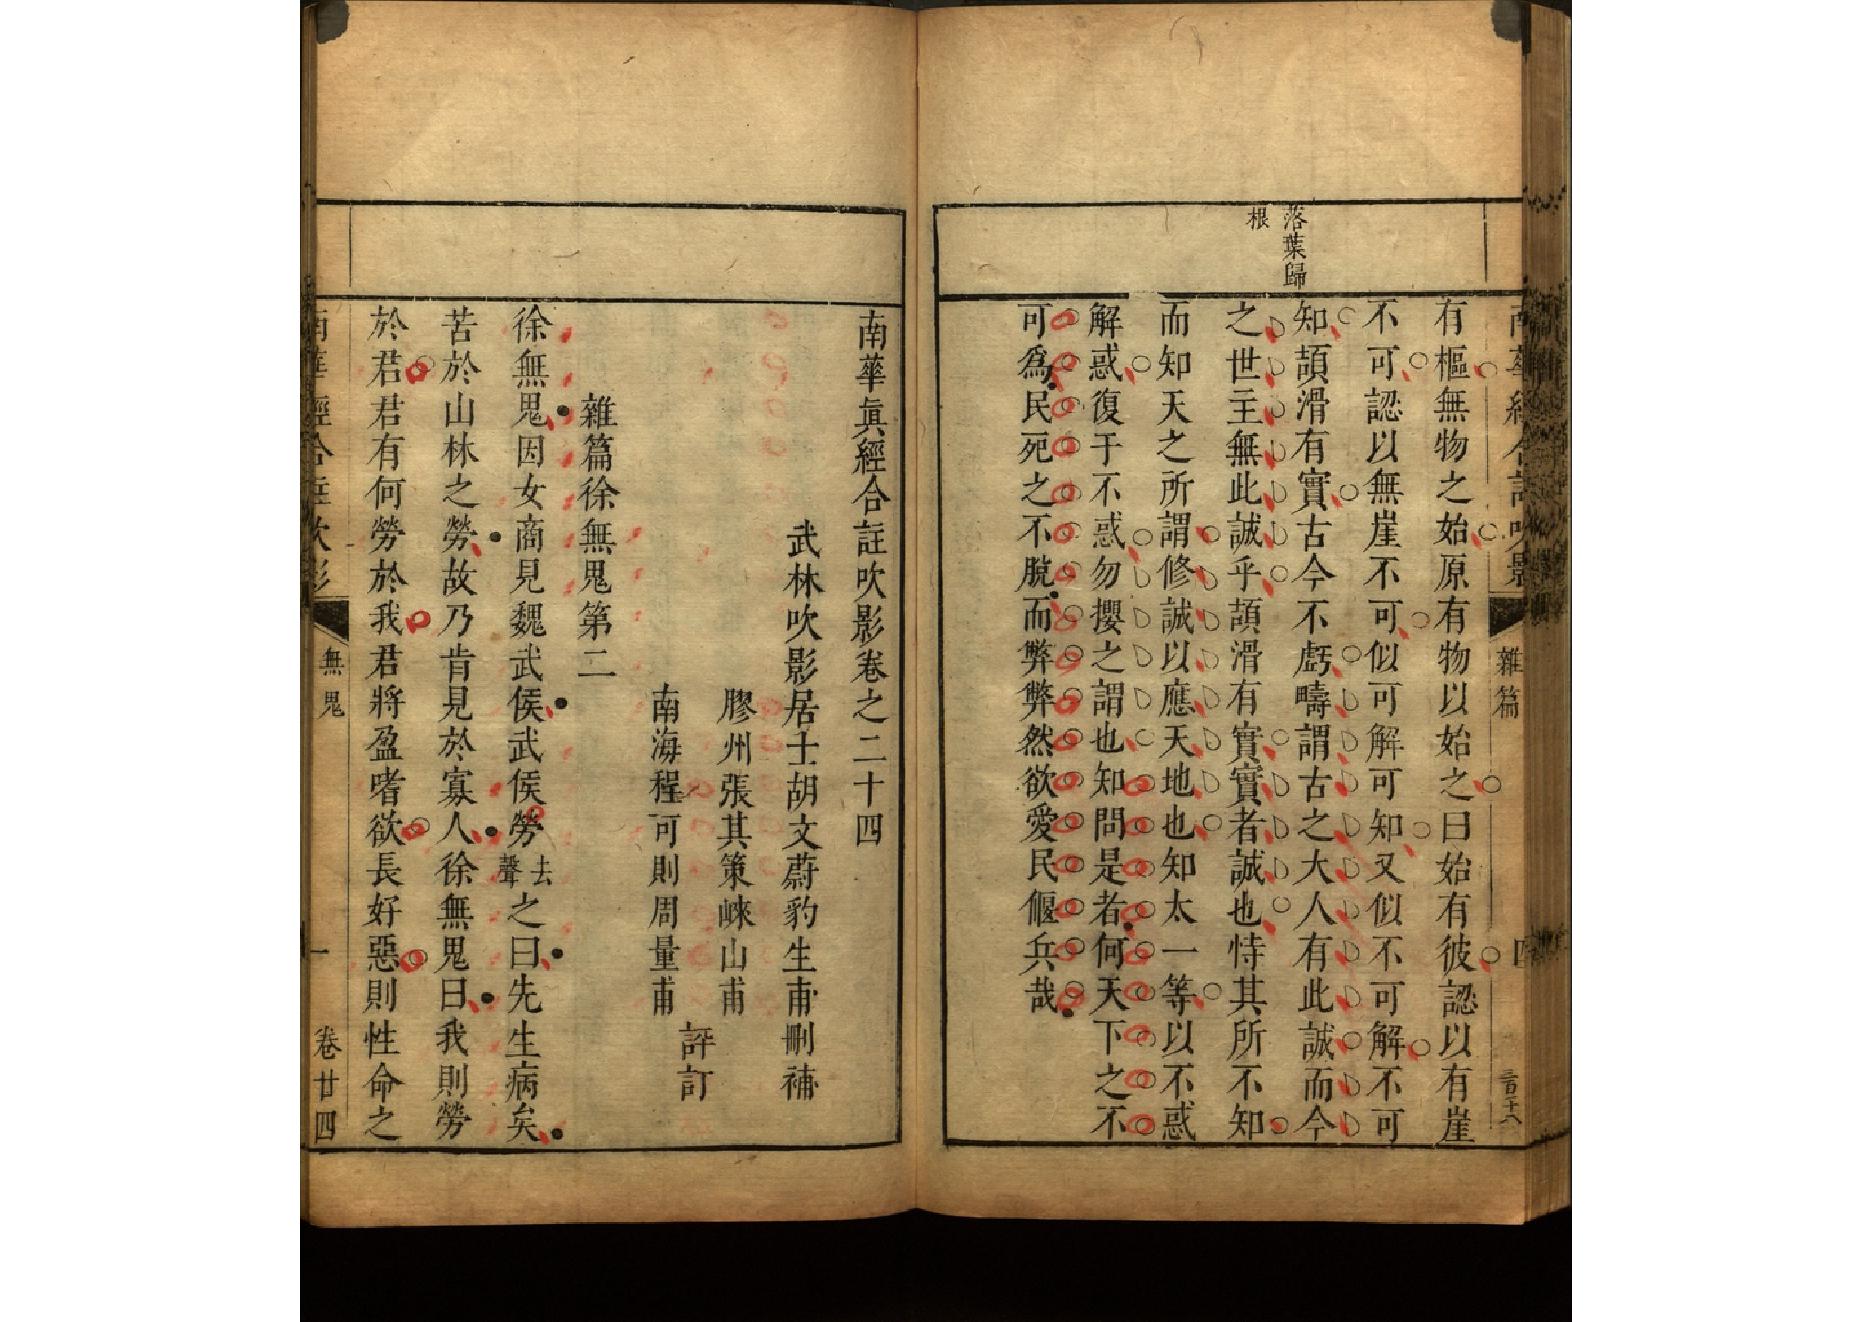 落葉歸
根
有樞無物之始原有物以始之曰始有彼認以有崖
不可認以無崖不可似可解可知又似不可解不可
知頡滑有實古今不虧疇謂古之大人有此誠而今
之世主無此誠乎頡滑有實實者誠也恃其所不知
而知天之所謂修誠以應天地也知太一等以不惑
解惑復于不惑勿攖之謂也知問是者何天下之不
可爲民死之不脫而弊弊然欲愛民偃兵哉
雜篇
四
南華眞經合註吹影卷之二十四
武林吹影居士胡文蔚豹生甫刪補
膠州張其策崍山甫
南海程可則周量甫
評訂
雜篇徐無鬼第二
徐無鬼因女商見魏武侯武侯勞去聲之曰先生病矣
苦於山林之勞故乃肯見於寡人徐無鬼曰我則勞
於君君有何勞於我君將盈嗜欲長好惡則性命之
南華經合註吹影
無鬼
一
卷廿四